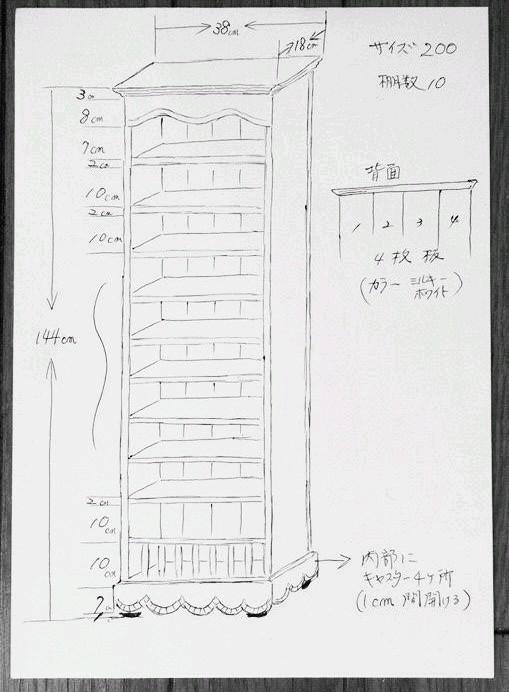 38cm
18cm
サイズ 200
棚数 10
3cm
8cm
7cm
2cm
10cm
2cm
10cm
144cm
2cm
10cm
10cm
7cm
背面
1 2 3 4
4枚 板
(カラー ミルキー
ホワイト)
内部に
キャスター4ヶ所
(1cm 間開ける)